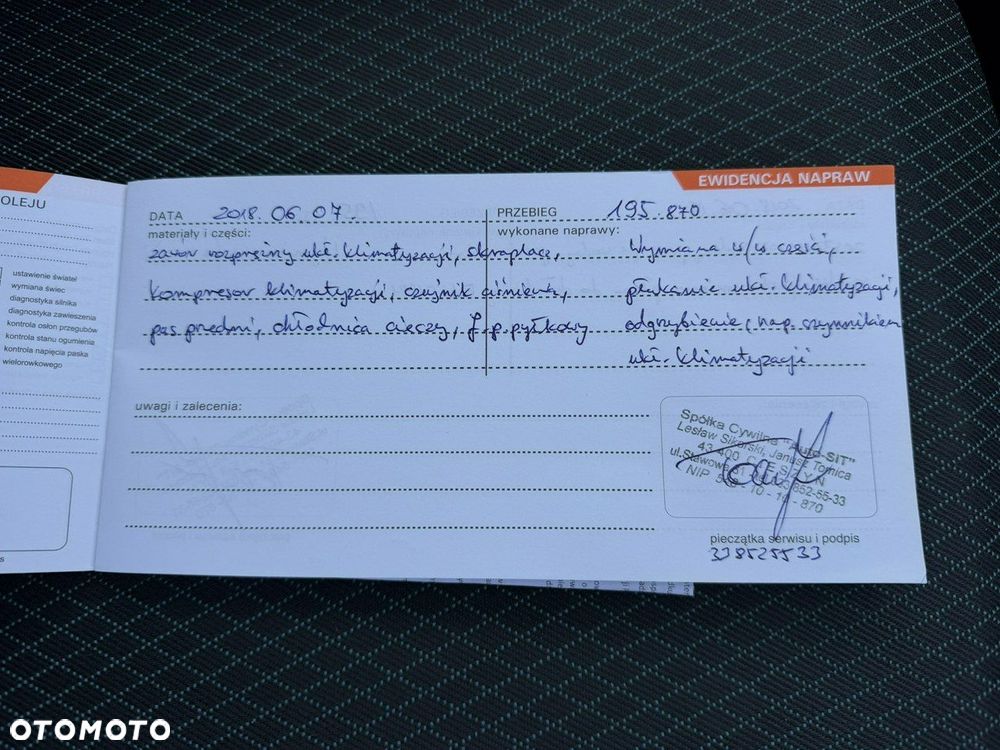 OLEJU
ustawienie świateł
wymiana świec
diagnostyka silnika
diagnostyka zawieszenia
kontrola osłon przegubów
kontrola stanu ogumienia
kontrola napięcia paska
wielorowkowego
EWIDENCJA NAPRAW
DATA 2018.06.07
PRZEBIEG 195.870
materiały i części:
zawór rozprężny ukł. klimatyzacji, skraplacz,
kompresor klimatyzacji, czujnik ciśnienia,
pas przedni, chłodnica cieczy, f. p. pyłkowy
wykonane naprawy:
Wymiana w/w części,
płukanie ukł. klimatyzacji,
odgrzybienie, nap. czynnikiem
ukł. klimatyzacji
uwagi i zalecenia:
Spółka Cywilna "Auto-SIT"
Lesław Sikorski, Janusz Tomica
43-400 CIESZYN
ul. Stawowa 852-55-33
NIP 10 - 10 - 870
pieczątka serwisu i podpis
338525533
OTOMOTO